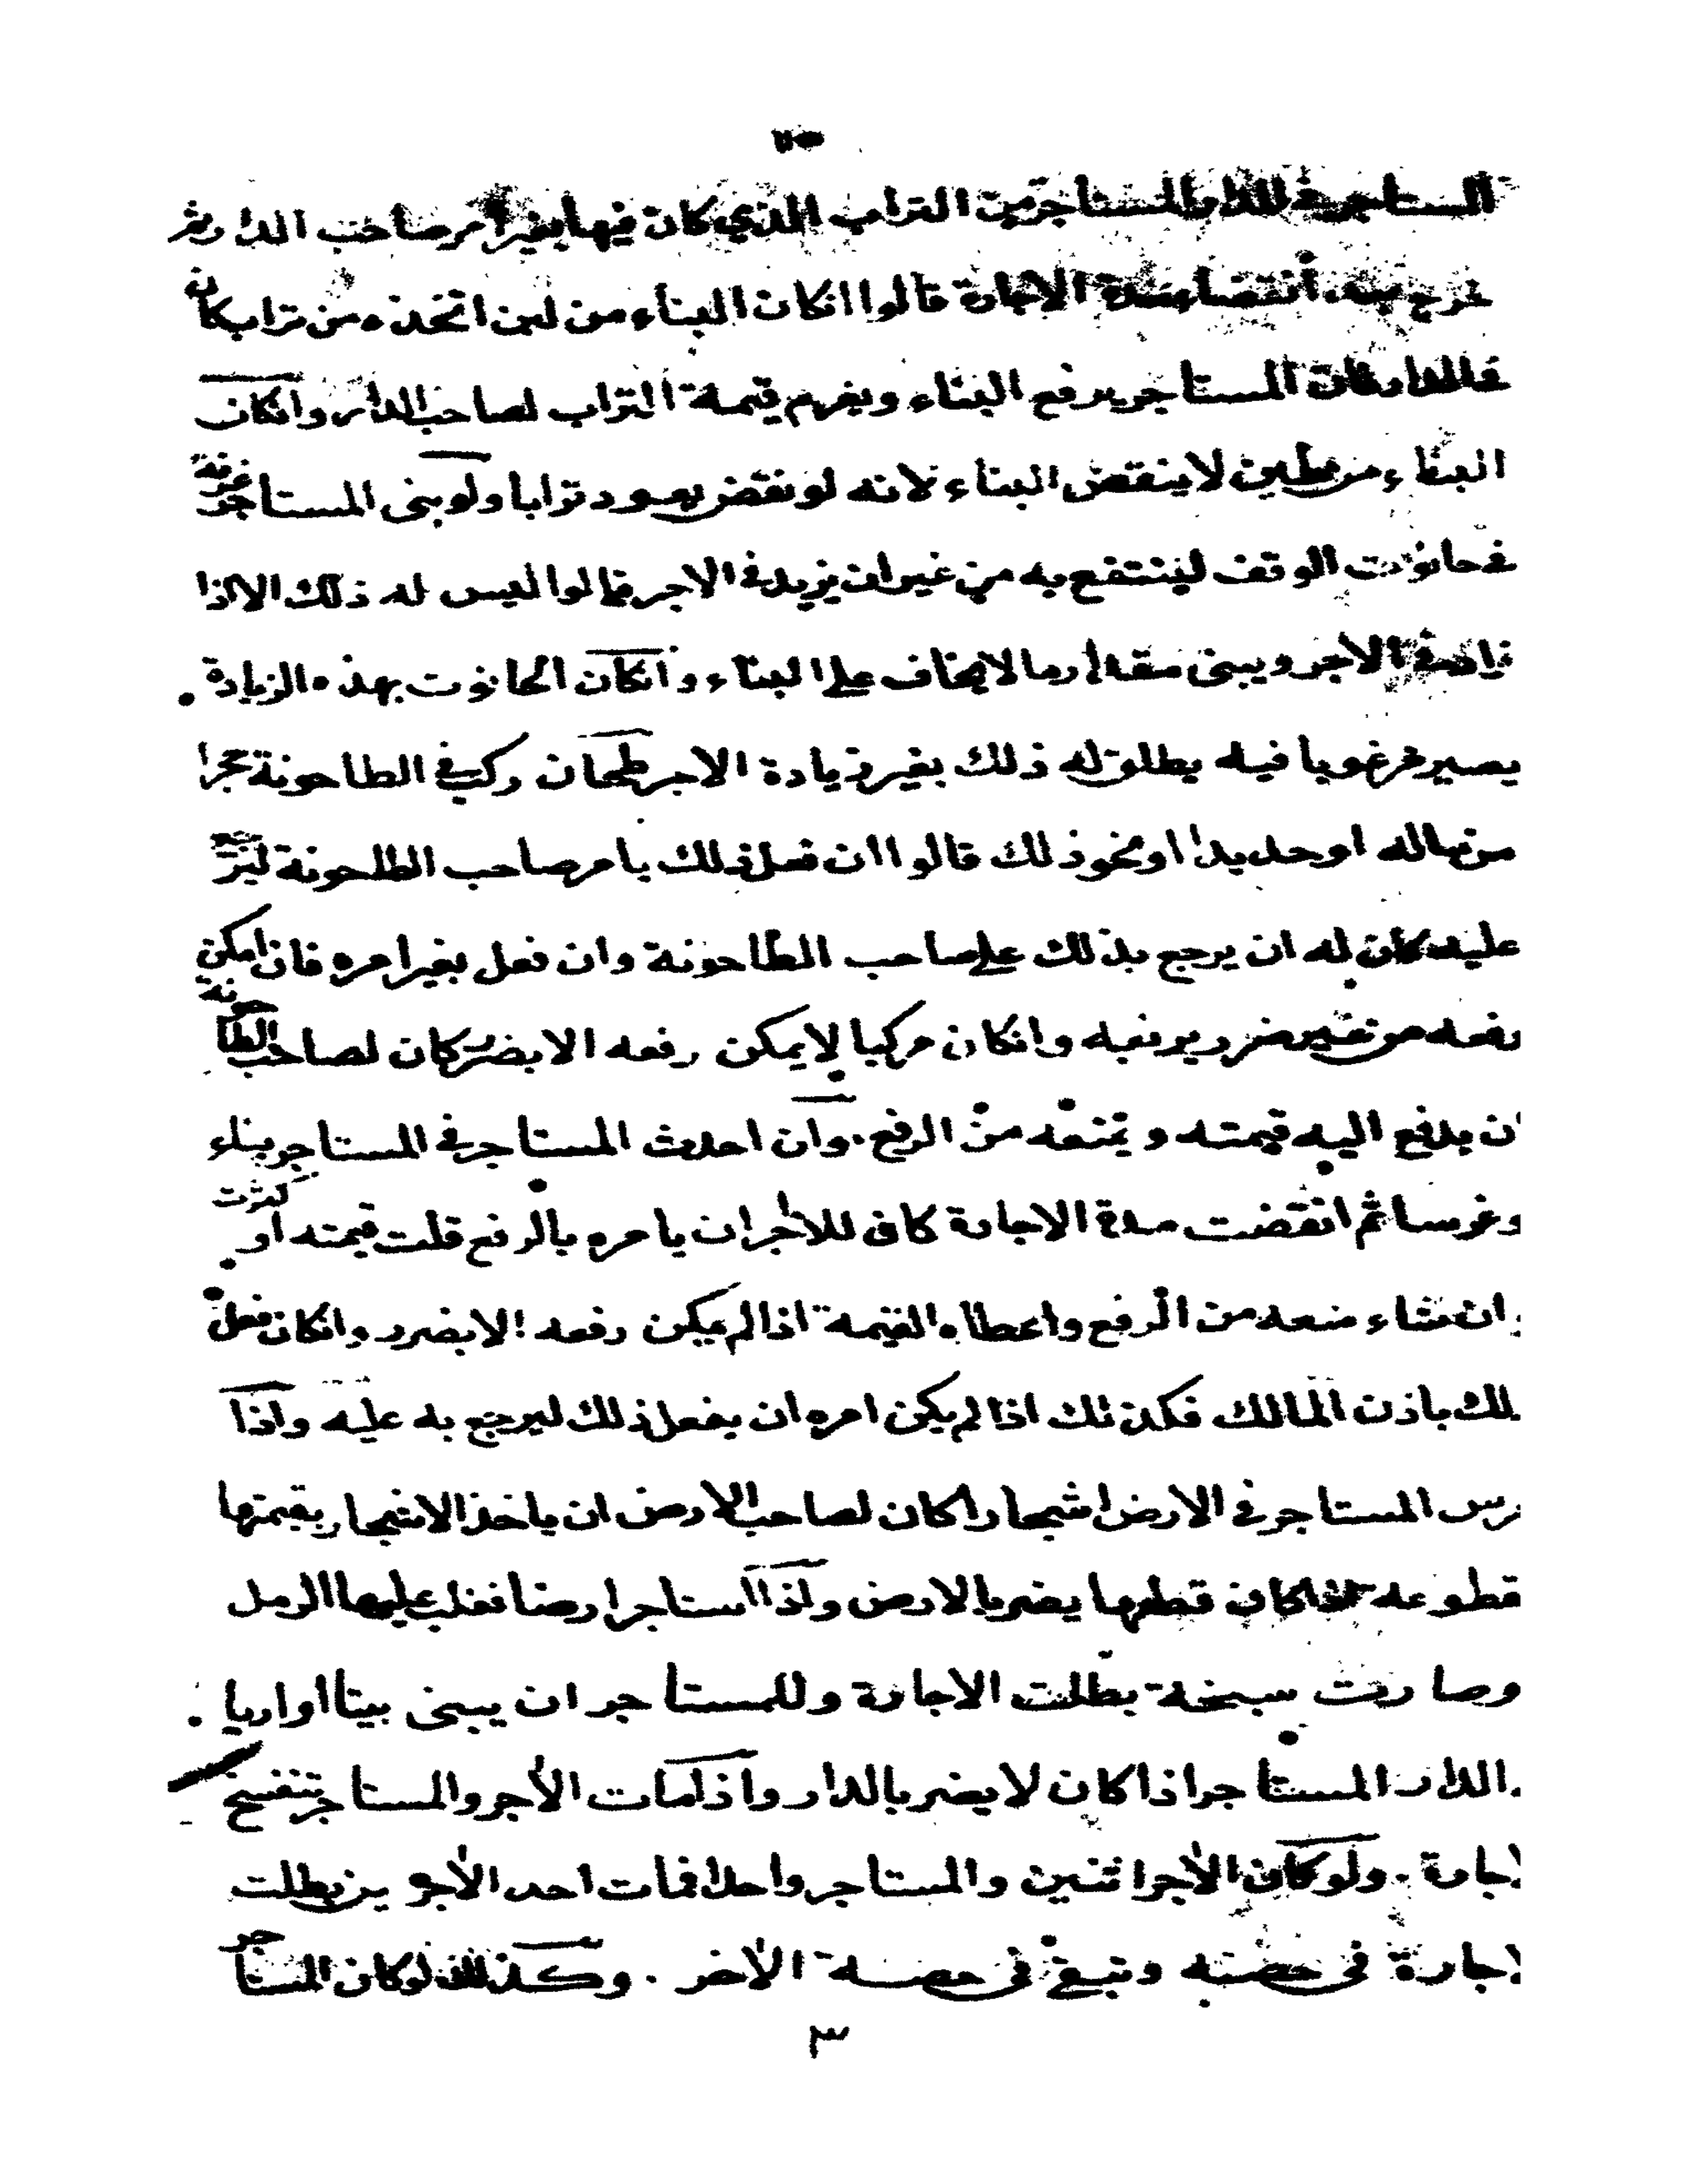 المستاجر في الدار المستاجرة من التراب الذي كان فيها بغير امر صاحب الدار ثم
خرج بعد انقضا مدة الاجارة قالوا انكان البناء من لبن اتخذه من تراب كان
في الدار فان المستاجر يرفع البناء ويغرم قيمة التراب لصاحب الدار وانكان
البناء من طين لا ينقض البناء لانه لو نقض يعود ترابا ولو بنى المستاجر غرفة
في حانوت الوقف لينتفع به من غير ان يزيد في الاجر قالوا ليس له ذلك الا اذا
زاد في الاجر ويبنى مقدار ما لا يخاف على البناء وانكان الحانوت بهذه الزيادة
يصير مرغوبا فيه يطلق له ذلك بغير زيادة الاجر طحان ركب في الطاحونة حجرا
من ماله او حديدا او نحو ذلك قالوا ان فعل ذلك بامر صاحب الطاحونة ليرجع
عليه كان له ان يرجع بذلك على صاحب الطاحونة وان فعل بغير امره فان امكن
رفعه من غير ضرر يرفعه وانكان مركبا لا يمكن رفعه الا بضرر كان لصاحب الطاحونة
ان يدفع اليه قيمته ويمنعه من الرفع . وان احدث المستاجر في المستاجر بناء
وغرسا ثم انقضت مدة الاجارة كان للآجر ان يامره بالرفع قلت قيمته او كثرت
وان شاء منعه من الرفع واعطاه القيمة اذا لم يمكن رفعه الا بضرر وانكان فعل
ذلك باذن المالك فكذلك اذا لم يكن امره ان يفعل ذلك ليرجع به عليه واذا
غرس المستاجر في الارض اشجارا كان لصاحب الارض ان ياخذ الاشجار بقيمتها
مقطوعة اذا كان قطعها يضر بالارض واذا استاجر ارضا فغلب عليها الرمل
وصارت سبخة بطلت الاجارة وللمستاجر ان يبنى بيتا او اريا
في الدار المستاجر اذا كان لا يضر بالدار واذا مات الآجر والمستاجر تنفسخ
الاجارة . ولو كان الآجر اثنين والمستاجر واحدا فمات احد الآجرين بطلت
الاجارة في حصته وتبقى في حصة الآخر . وكذلك لو كان المستاجر
٣